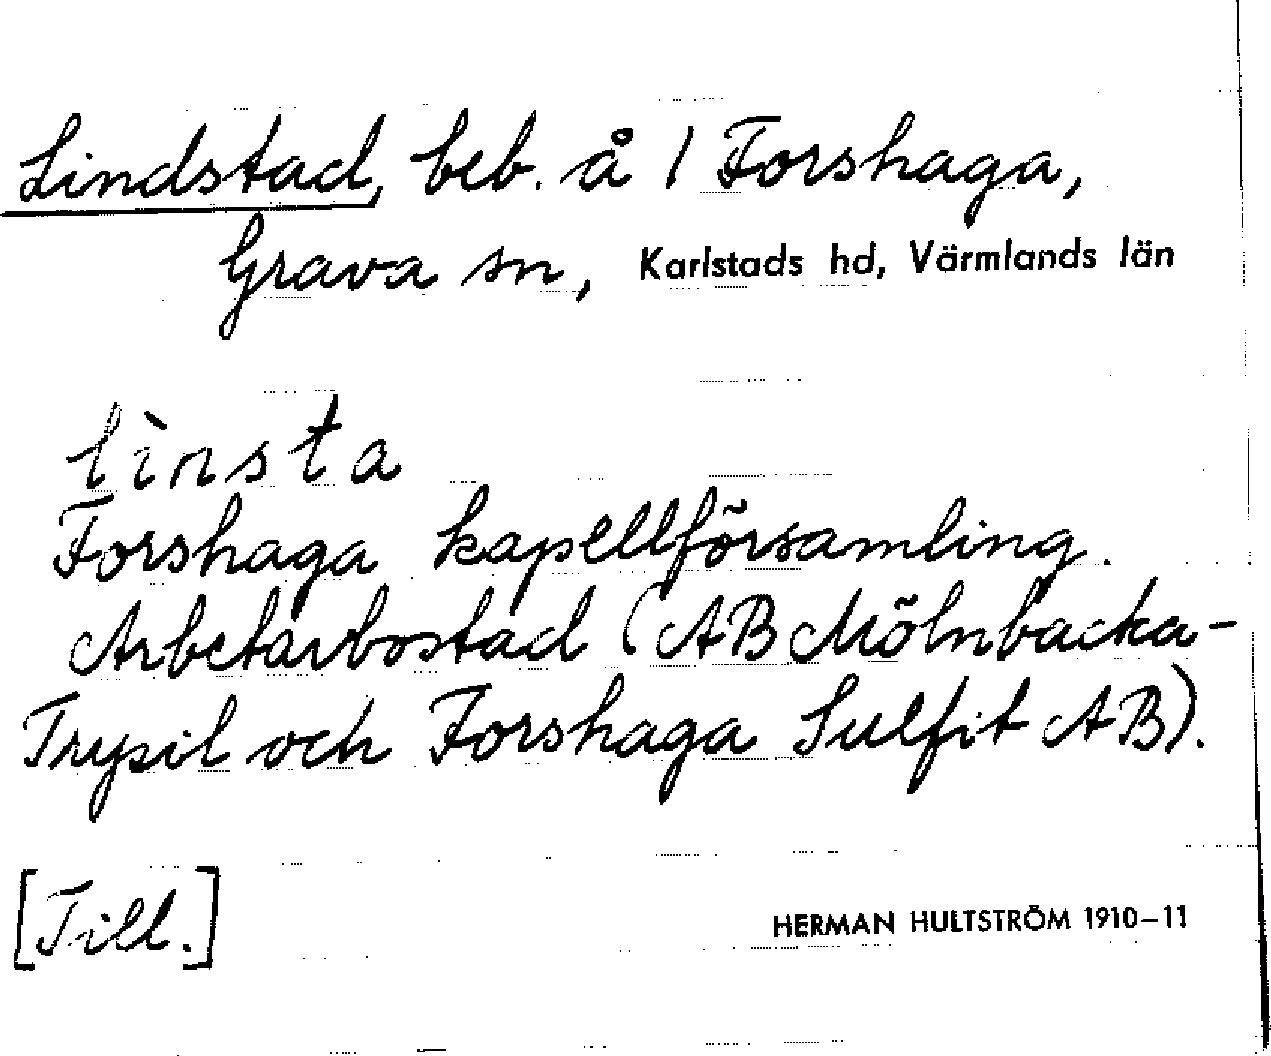 Lindstad, beb. å 1 Forshaga,
Grava sn, Karlstads hd, Värmlands län
lìnsta
Forshaga kapellförsamling.
Arbetarbostad (AB Mölnbacka-
Trysil och Forshaga Sulfit AB).
[Till.]
HERMAN HULTSTRÖM 1910–11